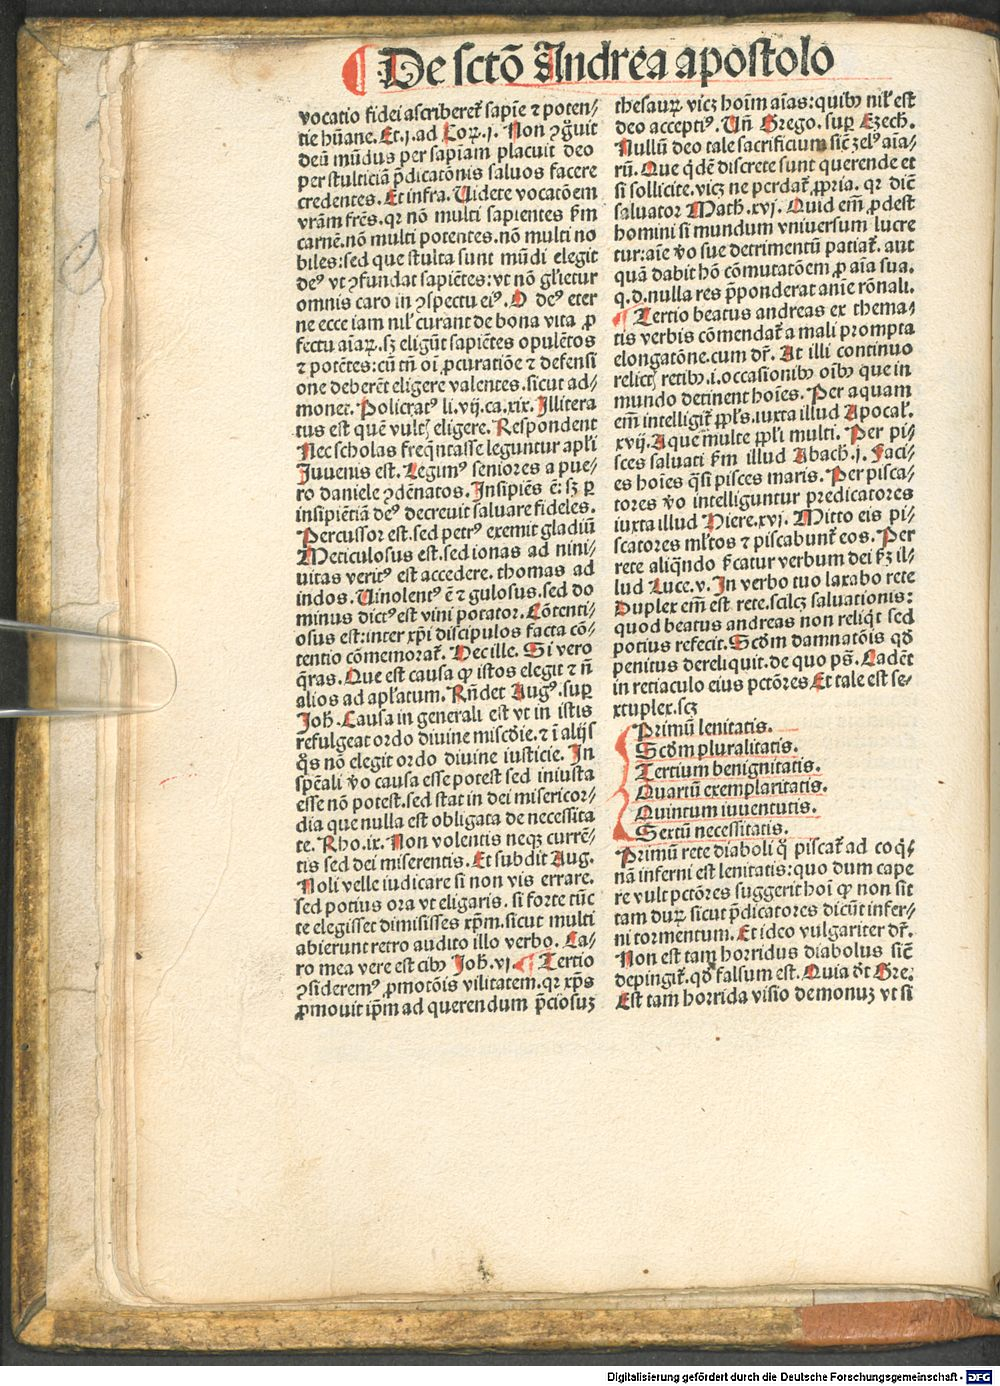 De sctō Andrea apostolo
vocatio fidei ascriberet᷑ sapīe ⁊ poten⸗
tie hūane. Et .j. ad Coꝝ .j. Non ꝯgͦuit
deū mūdus per sapīam placuit deo
per stulticiā p̄dicatōnis saluos facere
credentes. Et infra. Uidete vocatōem
vr̄am fr̄es. qꝛ nō multi sapientes ẜm
carnē. nō multi potentes. nō multi no
biles: sed que stulta sunt mūdi elegit
deꝰ vt ꝯfundat sapiētes: vt nō gl̄ietur
omnis caro in ꝯspectu eiꝰ. O deꝰ eter
ne ecce iam nil' curant de bona vita ꝓ
fectu aīaꝝ. sꝫ eligūt sapiētes opulētos
⁊ potētes: cū tn̄ oī ꝓcuratiōe ⁊ defensi
one deberēt eligere valentes. sicut ad⸗
monet. Policratꝰ li. vij. ca. xix. Illitera
tus est quē vultꝭ eligere. Respondent
Nec scholas freq̄ntasse leguntur apl'i
Juuenis est. Legimꝰ seniores a pue⸗
ro daniele ꝯdēnatos. Insipiēs ē: sꝫ ꝑ
insipiētiā deꝰ decreuit saluare fideles.
Percussor est. sed petrꝰ exemit gladiū
Meticulosus est. sed ionas ad nini⸗
uitas veritꝰ est accedere. thomas ad
indos. Uinolentꝰ ē ⁊ gulosus. sed do
minus dictꝰ est vini potator. Cōtenti⸗
osus est: inter xp̄i discipulos facta cō⸗
tentio cōmemorat᷑. Hec ille. Si vero
q̄ras. Que est causa ꝙ istos elegit ⁊ n̄
alios ad apl'atum. Rn̄det Augꝰ. suꝑ
Joh̄. Causa in generali est vt in istis
refulgeat ordo diuine miscd̄ie. ⁊ ī alijs
q̄s nō elegit ordo diuine iusticie. In
sp̄eāli v̄o causa esse potest sed iniusta
esse nō potest. sed stat in dei misericor⸗
dia que nulla est obligata de necessita
te. Rho. ix. Non volentis neqꝫ currē⸗
tis sed dei miserentis. Et subdit Aug.
Noli velle iudicare si non vis errare.
sed potius ora vt eligaris. si forte tūc
te elegisset dimisisses xp̄m. sicut multi
abierunt retro audito illo verbo. Ca⸗
ro mea vere est cibꝰ Joh̄. vj. ¶ Tertio
ꝯsideremꝰ ꝓmotōis vilitatem. qꝛ xp̄s
ꝓmouit ip̄m ad querendum p̄ciosuꝫ
thesauꝝ vicꝫ hoīm aīas: quibꝰ nil' est
deo acceptiꝰ. Un̄ Grego. suꝑ Ezech̄.
Nullū deo tale sacrificium sic̄ ꝫelꝰ aīa⸗
rū. Que q̄dē discrete sunt querende et
si sollicite. vicꝫ ne perdat᷑ ꝓpria. qꝛ dic̄
saluator Math̄. xvj. Quid em̄ ꝓdest
homini si mundum vniuersum lucre
tur: aīe v̄o sue detrimentū patiat᷑. aut
quā dabit hō cōmutatōem ꝓ aīa sua.
q. d. nulla res p̄ponderat anīe rōnali.
¶ Tertio beatus andreas ex thema⸗
tis verbis cōmendat᷑ a mali prompta
elongatōne. cum dr̄. At illi continuo
relictꝭ retibꝰ. i. occasionibꝰ oībꝰ que in
mundo detinent hoīes. Per aquam
em̄ intelligit᷑ ppl's. iuxta illud Apocal'.
xvij. Aque multe ppl'i multi. Per pi⸗
sces saluati ẜm illud Abach. j. Faci⸗
es hoīes q̄si pisces maris. Per pisca⸗
tores v̄o intelliguntur predicatores
iuxta illud Hiere. xvj. Mitto eis pi⸗
scatores ml'tos ⁊ piscabunt᷑ eos. Per
rete aliqn̄do p̄catur verbum dei ẜꝫ il⸗
lud Luce. v. In verbo tuo laxabo rete
Duplex em̄ est rete. scilcꝫ saluationis:
quod beatus andreas non reliq̄t sed
potius refecit. Scd̄m damnatōis qd̄
penitus dereliquit. de quo ps̄. Cadēt
in retiaculo eius pctōres Et tale est se⸗
xtuplex. scꝫ
Primū lenitatis.
Scd̄m pluralitatis.
Tertium benignitatis.
Quartū exemplaritatis.
Quintum iuuentutis.
Sextū necessitatis.
Primū rete diaboli q̄ piscat᷑ ad coq̄⸗
nā inferni est lenitatis: quo dum cape
re vult pctōres suggerit hoī ꝙ non sit
tam duꝝ sicut p̄dicatores dicūt infer⸗
ni tormentum. Et ideo vulgariter dr̄.
Non est tam horridus diabolus sic̄
depingit᷑. qd̄ falsum est. Quia dt̄ Gre.
Est tam horrida visio demonuꝫ vt si
Digitalisierung gefördert durch die Deutsche Forschungsgemeinschaft - DFG